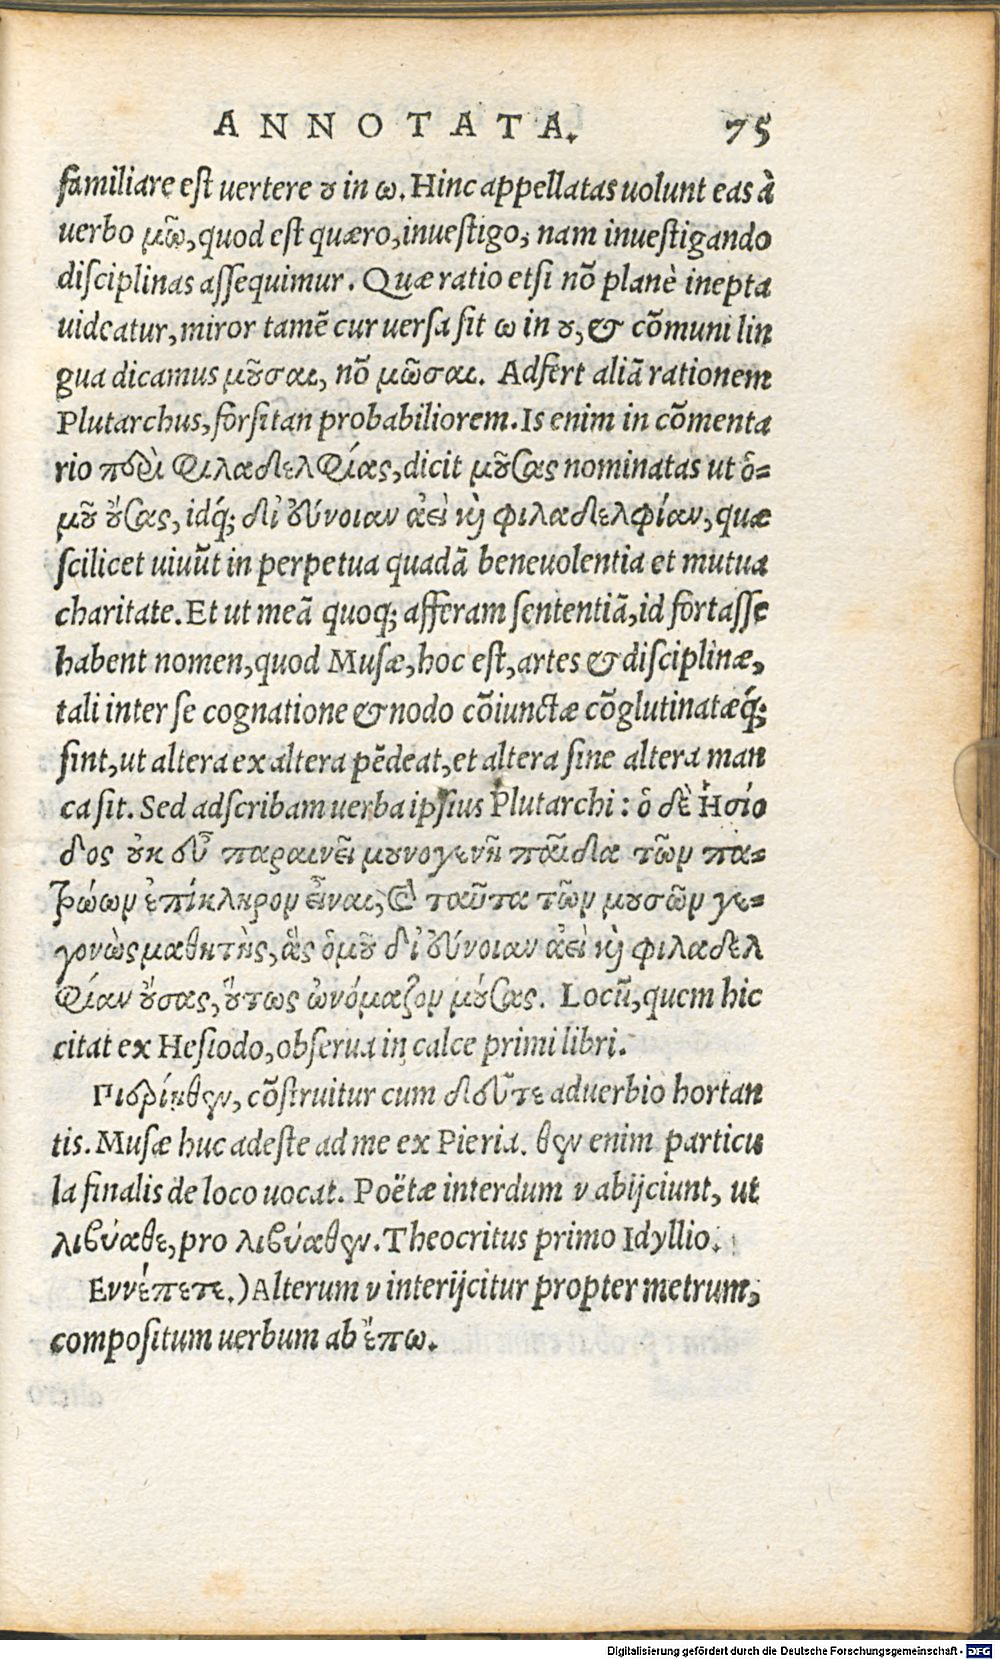 ANNOTATA. 75
familiare est uertere ȣ in ω. Hinc appellatas uolunt eas à
uerbo μῶ, quod est quæro, inuestigo, nam inuestigando
disciplinas assequimur. Quæ ratio etsi nõ planè inepta
uideatur, miror tamẽ cur uersa sit ω in ȣ, & cõmuni lin
gua dicamus μȣ͂σαι, nõ μῶσαι. Adfert aliã rationem
Plutarchus, forsitan probabiliorem. Is enim in cõmenta
rio περὶ Φιλαδελφίας, dicit μȣ͂σας nominatas ut ὁ-
μȣ͂ ȣ̓́σας, idq́; δι' εὔνοιαν ἀεὶ κὶ φιλαδελφίαν, quæ
scilicet uiuũt in perpetua quadã beneuolentia et mutua
charitate. Et ut meã quoq; afferam sententiã, id fortasse
habent nomen, quod Musæ, hoc est, artes & disciplinæ,
tali inter se cognatione & nodo cõiunctæ cõglutinatæq́;
sint, ut altera ex altera pẽdeat, et altera sine altera man
ca sit. Sed adscribam uerba ipsius Plutarchi: ὁ δὲ Ησίο
δος ȣκ εὖ παραινεῖ μȣνογενῆ παῖδα τῶν πα-
τρώων ἐπίκληρον εἶναι, καὶ ταῦτα τῶν μȣσῶν γε-
γονὼς μαθητὴς, ἃς ὁμȣ͂ δι' εὔνοιαν ἀεὶ κὶ φιλαδελ
φίαν ȣ̓́σας, ȣ̔́τως ὠνόμαζον μȣ́σας. Locũ, quem hic
citat ex Hesiodo, obserua in calce primi libri.
Πιερίηθεν, cõstruitur cum δεῦτε aduerbio hortan
tis. Musæ huc adeste ad me ex Pieria. θεν enim particu
la finalis de loco uocat. Poëtæ interdum ν abijciunt, ut
λιβύαθε, pro λιβύαθεν. Theocritus primo Idyllio.
Εννέπετε.) Alterum ν interijcitur propter metrum,
compositum uerbum ab ἔπω.
Digitalisierung gefördert durch die Deutsche Forschungsgemeinschaft - DFG